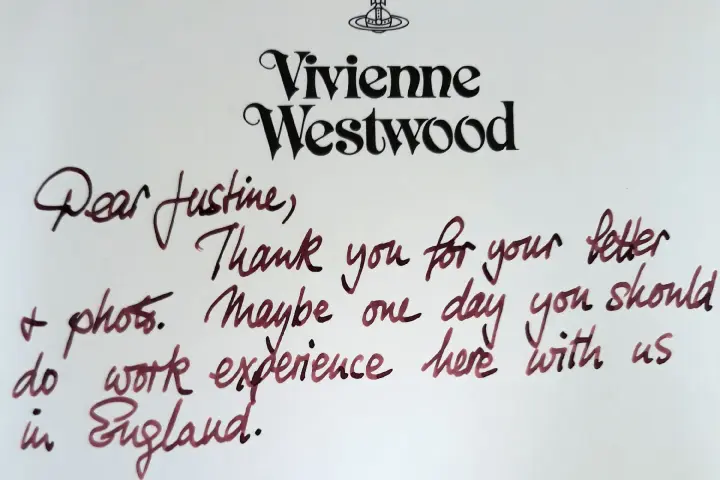 Vivienne
Westwood
Dear Justine,
Thank you for your letter
+ photo. Maybe one day you should
do work experience here with us
in England.